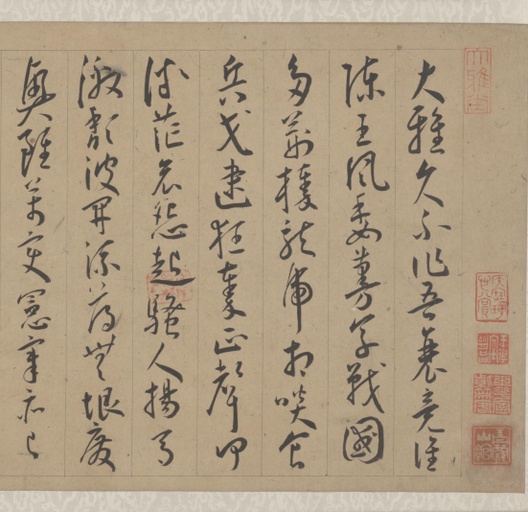 大雅久不作吾衰竟誰
陳王風委蔓草戰國
多荊榛龍虎相啖食
兵戈逮狂秦正聲何
微茫哀怨起騷人揚馬
激頹波開流蕩無垠廢
興雖萬變憲章亦已